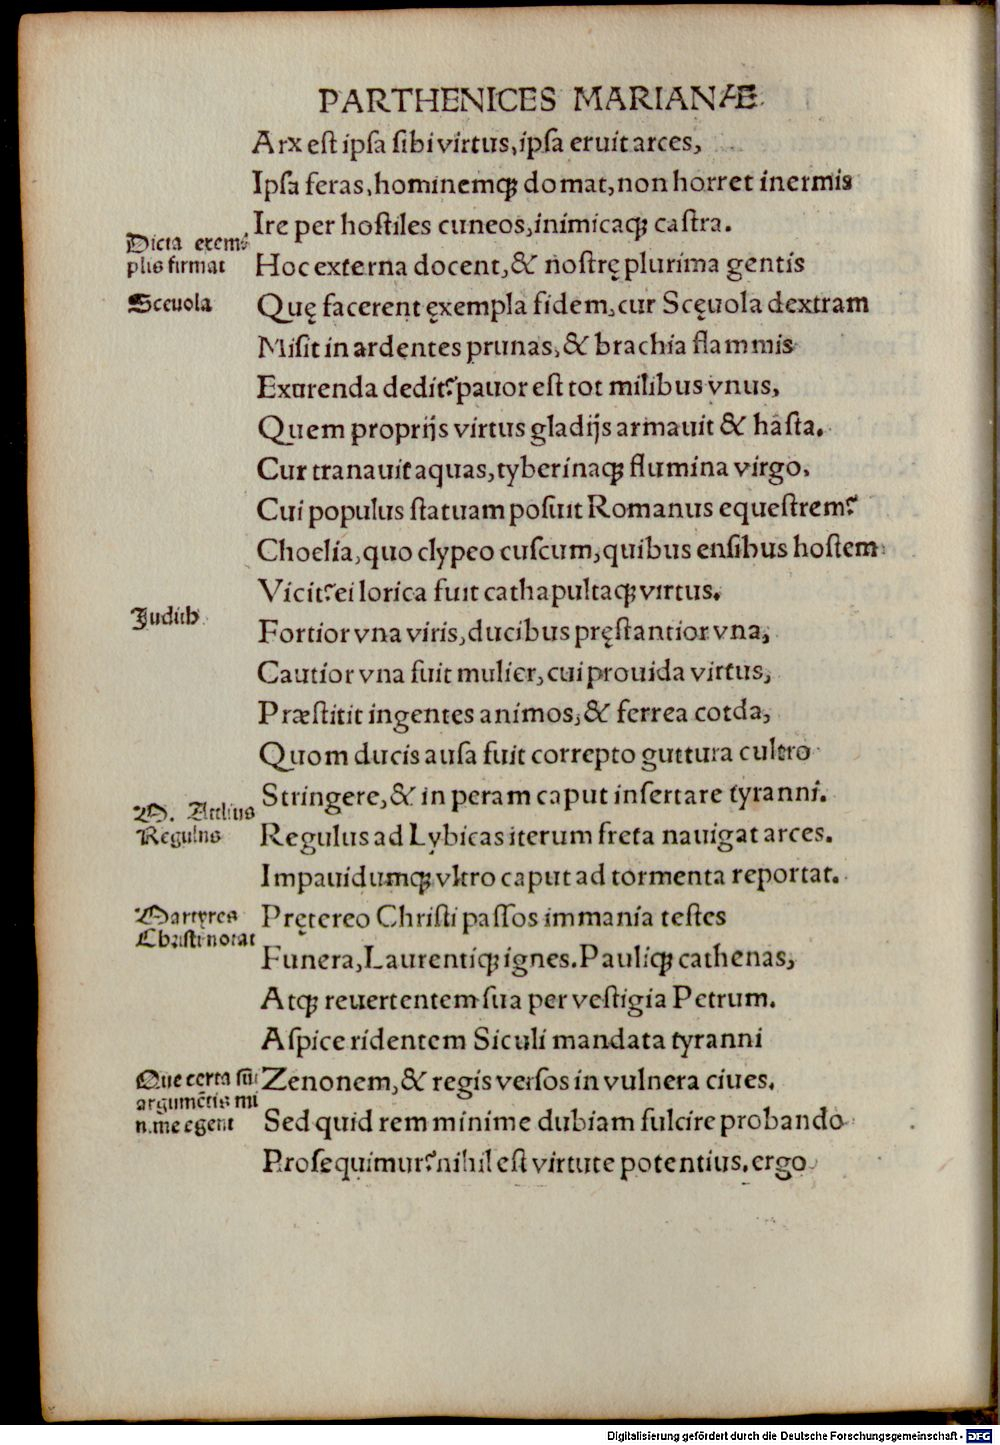 PARTHENICES MARIANÆ.
Arx est ipsa sibi virtus, ipsa eruit arces,
Ipsa feras, hominemqꝫ domat, non horret inermis
Ire per hostiles cuneos, inimicaqꝫ castra.
Dicta exem⸗
plis firmat
Hoc externa docent, & nostrę plurima gentis
Sceuola
Quę facerent ęxempla fidem, cur Scęuola dextram
Misit in ardentes prunas, & brachia flammis
Exurenda dedit? pauor est tot milibus vnus,
Quem proprijs virtus gladijs armauit & hasta.
Cur tranauit aquas, tyberinaqꝫ flumina virgo,
Cui populus statuam posuit Romanus equestrem?
Choelia, quo clypeo cuscum, quibus ensibus hostem
Vicit? ei lorica fuit cathapultaqꝫ virtus.
Judith
Fortior vna viris, ducibus pręstantior vna,
Cautior vna fuit mulier, cui prouida virtus,
Præstitit ingentes animos, & ferrea cotda,
Quom ducis ausa fuit correpto guttura cultro
Stringere, & in peram caput insertare tyranni.
M. Attilius
Regulus
Regulus ad Lybicas iterum freta nauigat arces.
Impauidumqꝫ vltro caput ad tormenta reportat.
Martyres
Christi notat
Prętereo Christi passos immania testes
Funera, Laurentiqꝫ ignes. Pauliqꝫ cathenas,
Atqꝫ reuertentem sua per vestigia Petrum.
Aspice ridentem Siculi mandata tyranni
Que certa sūt
argumētis mi
nime egent
Zenonem, & regis versos in vulnera ciues.
Sed quid rem minime dubiam fulcire probando
Prosequimur? nihil est virtute potentius. ergo
Digitalisierung gefördert durch die Deutsche Forschungsgemeinschaft - DFG